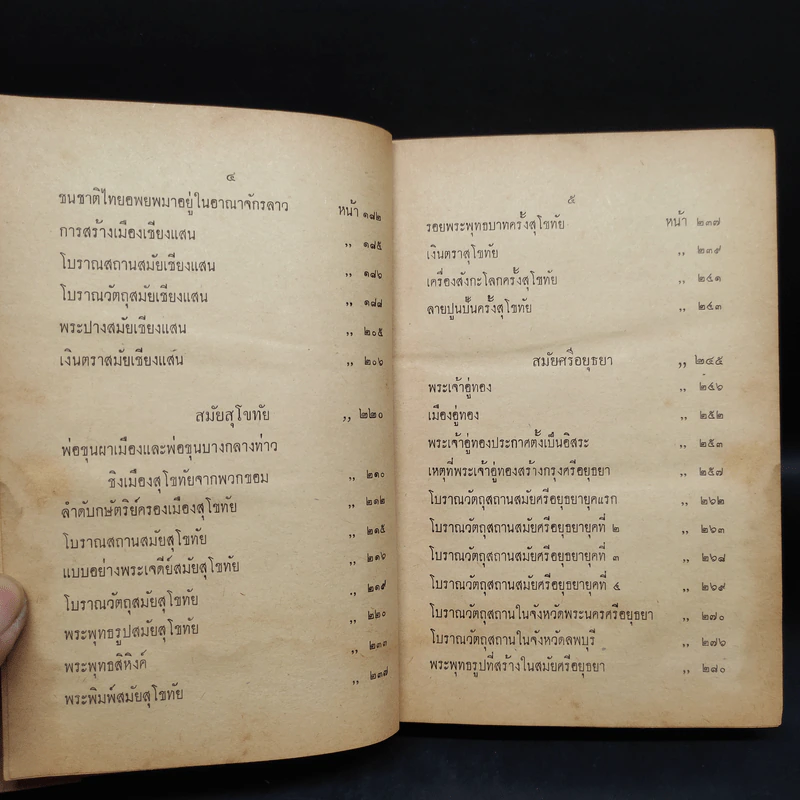 ๔
ชนชาติไทยอพยพมาอยู่ในอาณาจักรลาว หน้า ๑๘๒
การสร้างเมืองเชียงแสน ,, ๑๘๕
โบราณสถานสมัยเชียงแสน ,, ๑๘๖
โบราณวัตถุสมัยเชียงแสน ,, ๑๘๘
พระปางสมัยเชียงแสน ,, ๒๐๕
เงินตราสมัยเชียงแสน ,, ๒๐๖
สมัยสุโขทัย ,, ๒๒๐
พ่อขุนผาเมืองและพ่อขุนบางกลางท่าว
ชิงเมืองสุโขทัยจากพวกขอม ,, ๒๑๐
ลำดับกษัตริย์ครองเมืองสุโขทัย ,, ๒๑๒
โบราณสถานสมัยสุโขทัย ,, ๒๑๕
แบบอย่างพระเจดีย์สมัยสุโขทัย ,, ๒๑๖
โบราณวัตถุสมัยสุโขทัย ,, ๒๑๙
พระพุทธรูปสมัยสุโขทัย ,, ๒๒๐
พระพุทธสิหิงค์ ,, ๒๓๓
พระพิมพ์สมัยสุโขทัย ,, ๒๓๗
๕
รอยพระพุทธบาทครั้งสุโขทัย หน้า ๒๓๗
เงินตราสุโขทัย ,, ๒๓๙
เครื่องสังกะโลกครั้งสุโขทัย ,, ๒๔๑
ลายปูนปั้นครั้งสุโขทัย ,, ๒๔๓
สมัยศรีอยุธยา ,, ๒๔๕
พระเจ้าอู่ทอง ,, ๒๔๖
เมืองอู่ทอง ,, ๒๕๒
พระเจ้าอู่ทองประกาศตั้งเป็นอิสระ ,, ๒๕๓
เหตุที่พระเจ้าอู่ทองสร้างกรุงศรีอยุธยา ,, ๒๕๗
โบราณวัตถุสถานสมัยศรีอยุธยายุคแรก ,, ๒๖๒
โบราณวัตถุสถานสมัยศรีอยุธยายุคที่ ๒ ,, ๒๖๓
โบราณวัตถุสถานสมัยศรีอยุธยายุคที่ ๓ ,, ๒๖๘
โบราณวัตถุสถานสมัยศรีอยุธยายุคที่ ๔ ,, ๒๖๙
โบราณวัตถุสถานในจังหวัดพระนครศรีอยุธยา ,, ๒๗๐
โบราณวัตถุสถานในจังหวัดลพบุรี ,, ๒๗๖
พระพุทธรูปที่สร้างในสมัยศรีอยุธยา ,, ๒๘๐